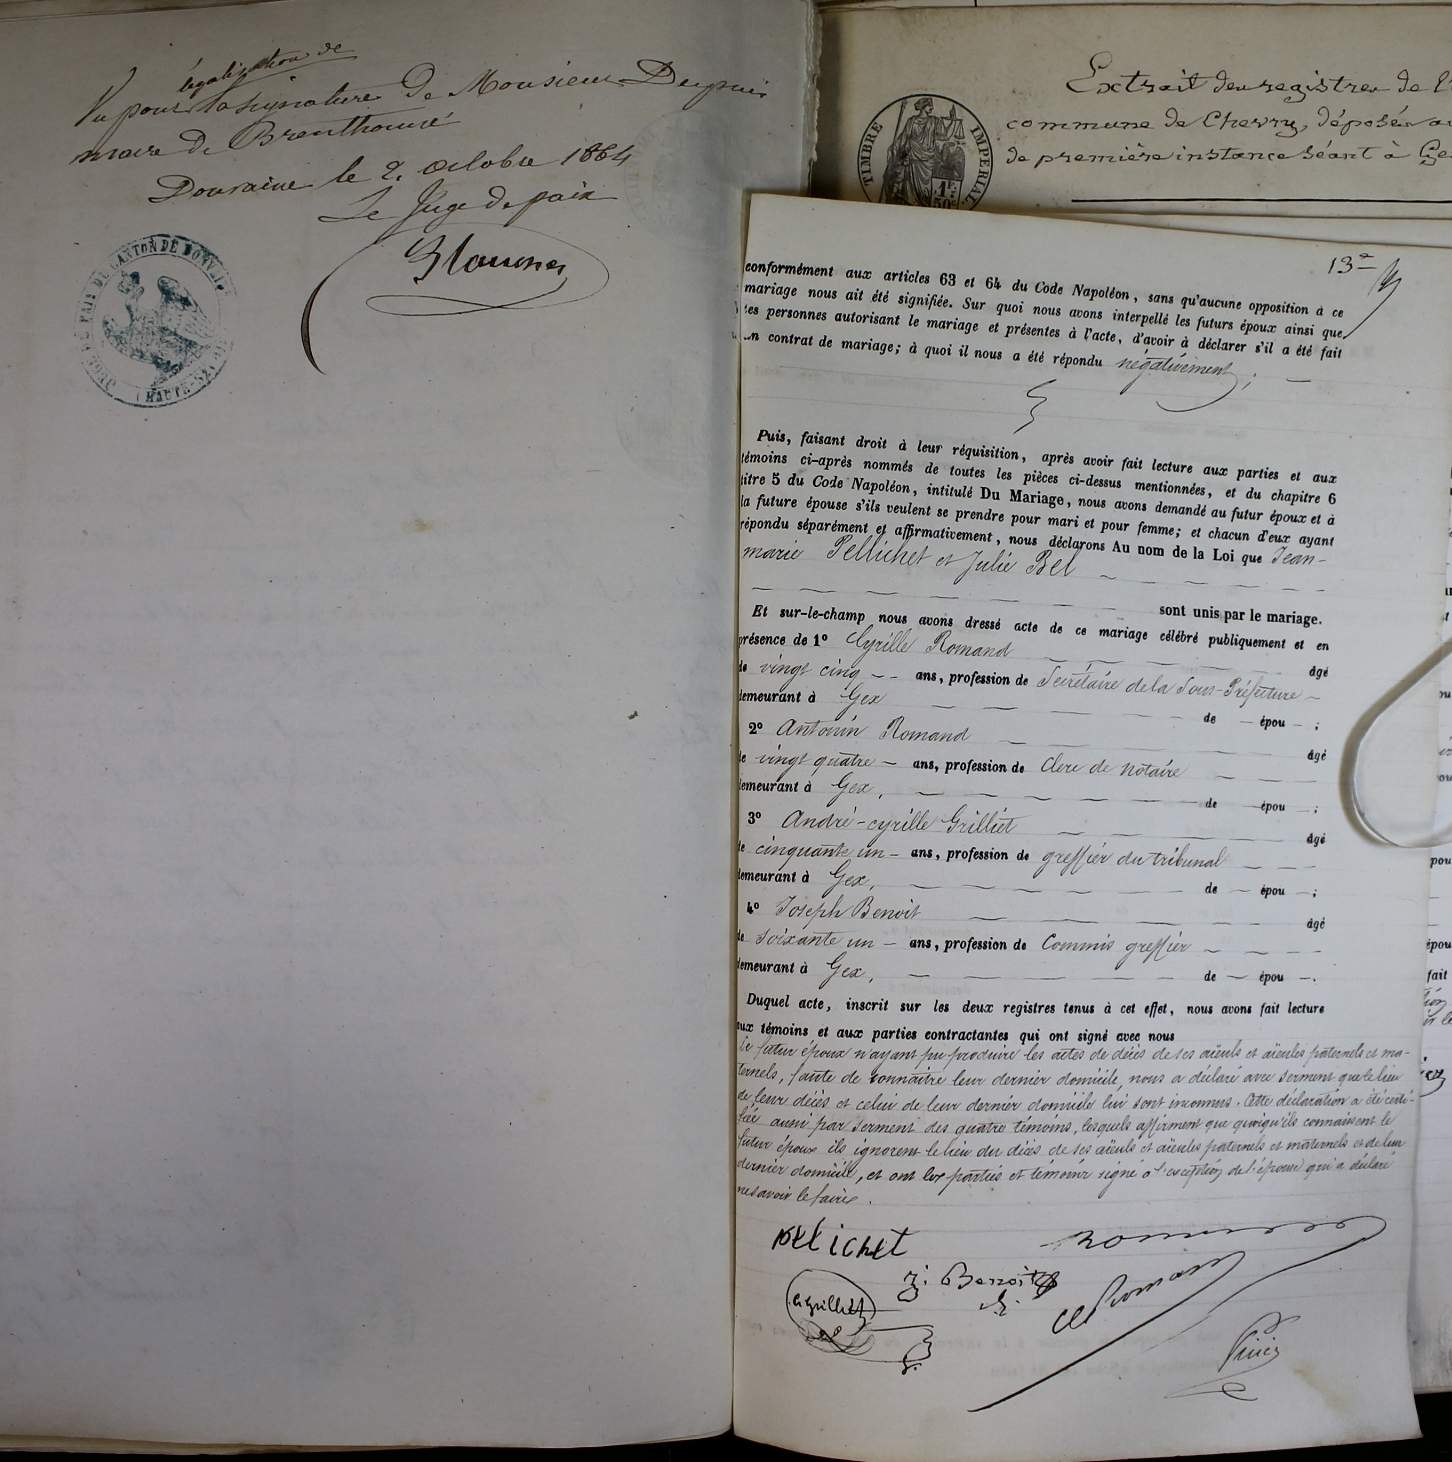 légalization de
Vu pour la signature de Monsieur Dupuis
maire de Brenthonne
Douvaine le 2. octobre 1864
Le Juge de paix
CANTON DE DOUVAINE
Extrait des registres de l'
commune de Chevry, déposés au
de première instance séant à Gex
TIMBRE IMPERIAL
1F
50c
13e
conformément aux articles 63 et 64 du Code Napoléon, sans qu'aucune opposition à ce
mariage nous ait été signifiée. Sur quoi nous avons interpellé les futurs époux ainsi que
les personnes autorisant le mariage et présentes à l'acte, d'avoir à déclarer s'il a été fait
un contrat de mariage; à quoi il nous a été répondu négativement;
Puis, faisant droit à leur réquisition, après avoir fait lecture aux parties et aux
témoins ci-après nommés de toutes les pièces ci-dessus mentionnées, et du chapitre 6
titre 5 du Code Napoléon, intitulé Du Mariage, nous avons demandé au futur époux et à
la future épouse s'ils veulent se prendre pour mari et pour femme; et chacun d'eux ayant
répondu séparément et affirmativement, nous déclarons Au nom de la Loi que Jean-
marie Pellichet et Julie Bel
sont unis par le mariage.
Et sur-le-champ nous avons dressé acte de ce mariage célébré publiquement et en
présence de 1° Cyrille Romand âgé
de vingt cinq -- ans, profession de Secrétaire de la Sous-Préfecture -
demeurant à Gex de - épou - ;
2° Antonin Romand âgé
de vingt quatre - ans, profession de Clerc de notaire
demeurant à Gex, de - épou - ;
3° André-cyrille Grilliet âgé
de cinquante un - ans, profession de greffier du tribunal
demeurant à Gex, de - épou - ;
4° Joseph Benoit âgé
de soixante un - ans, profession de Commis greffier
demeurant à Gex, de - épou - .
Duquel acte, inscrit sur les deux registres tenus à cet effet, nous avons fait lecture
aux témoins et aux parties contractantes qui ont signé avec nous
Le futur époux n'ayant pu produire les actes de décès de ses aïeuls et aïeules paternels et ma-
ternels, faute de connaître leur dernier domicile, nous a déclaré avec serment que le lieu
de leur décès et celui de leur dernier domicile lui sont inconnus. Cette déclaration a été certi-
fiée aussi par serment des quatre témoins, lesquels affirment que quoiqu'ils connaissent le
futur époux ils ignorent le lieu du décès de ses aïeuls et aïeules paternels et maternels et de leur
dernier domicile, et ont les parties et témoins signé à l'exception de l'épouse qui a déclaré
ne savoir le faire.
pellichet
Romand
j. Benoit
C Romand
a. grilliet